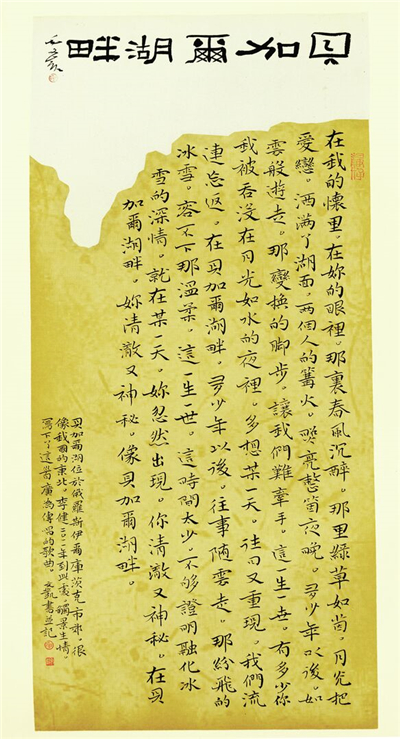 貝加爾湖畔
在我的懷里。在妳的眼裡。那裏春風沉醉。那里绿草如茵。月光把
爱戀。洒满了湖面。两個人的篝火。照亮整箇夜晚。多少年以後。如
雲般遊走。那變换的脚步。讓我們難牽手。這一生一世。有多少你
我被吞没在月光如水的夜裡。多想某一天。往日又重現。我們流
連忘返。在貝加爾湖畔 多少年以後。往事随雲走。那紛飛的
冰雪。容不下那溫柔。這一生一世。這時間太少。不够證明融化冰
雪的深情。就在某一天。妳忽然出現。你清澈又神秘。在貝
加爾湖畔。妳清澈又神秘。像貝加爾湖畔。
貝加爾湖位於俄羅斯伊爾庫茨克市郊。很
像我國的東北。李健二〇一一年到此處。觸景生情。
寫下了這首廣為傳唱的歌曲。書並記